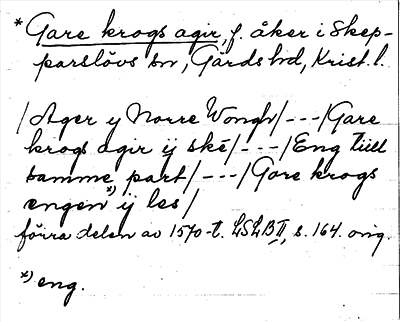 * Gare krogs agir, f. åker i Skep-
parslövs sn, Gärds hd, Krist. l.
/Ager y Norre Wongh/---/Gare
krogs agir ij ské/---/Eng tiill
samme part/---/Gore krogs
engen *) ij les/
förra delen av 1570-t. LSLB II, s. 164. orig.
*) eng.